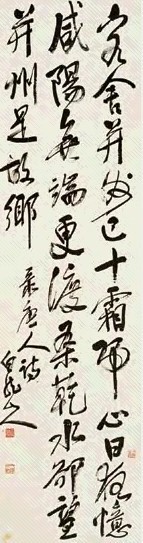 客舍并州已十霜歸心日夜憶
咸陽無端更渡桑乾水卻望
并州是故鄉
录唐人詩